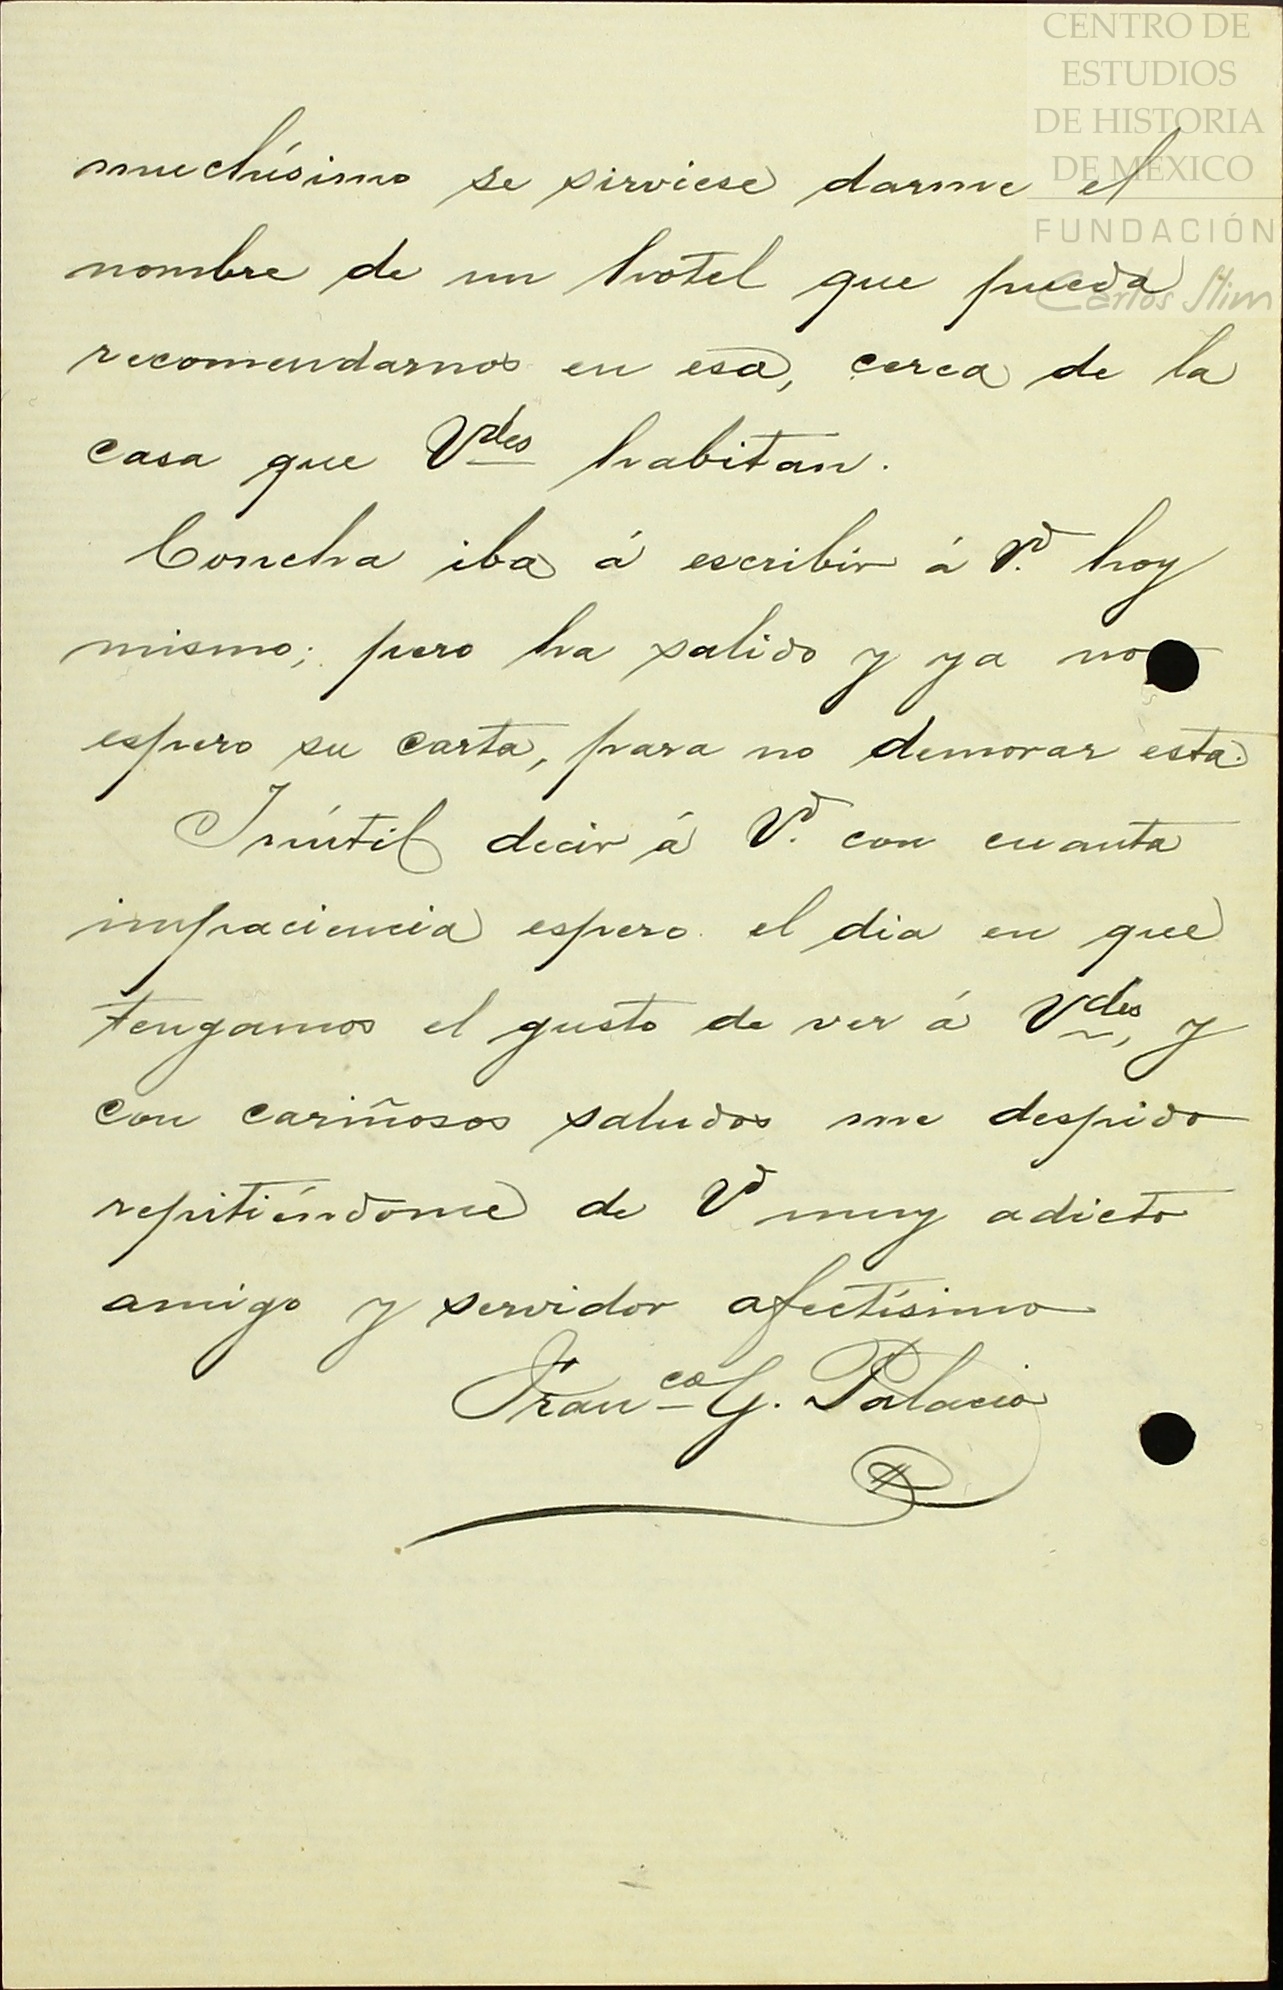 CENTRO DE
ESTUDIOS
DE HISTORIA
DE MÉXICO
FUNDACIÓN
Carlos Slim
muchísimo se sirviese darme el
nombre de un hotel que pueda
recomendarnos en esa, cerca de la
casa que Vdes habitan.
Concha iba á escribir á Vd. hoy
mismo; pero ha salido y ya no
espero su carta, para no demorar esta.
Inútil decir á Vd. con cuanta
impaciencia espero el dia en que
tengamos el gusto de ver á Vdes, y
con cariñosos saludos me despido
repitiéndome de Vd muy adicto
amigo y servidor afectísimo
Franco G. Palacio